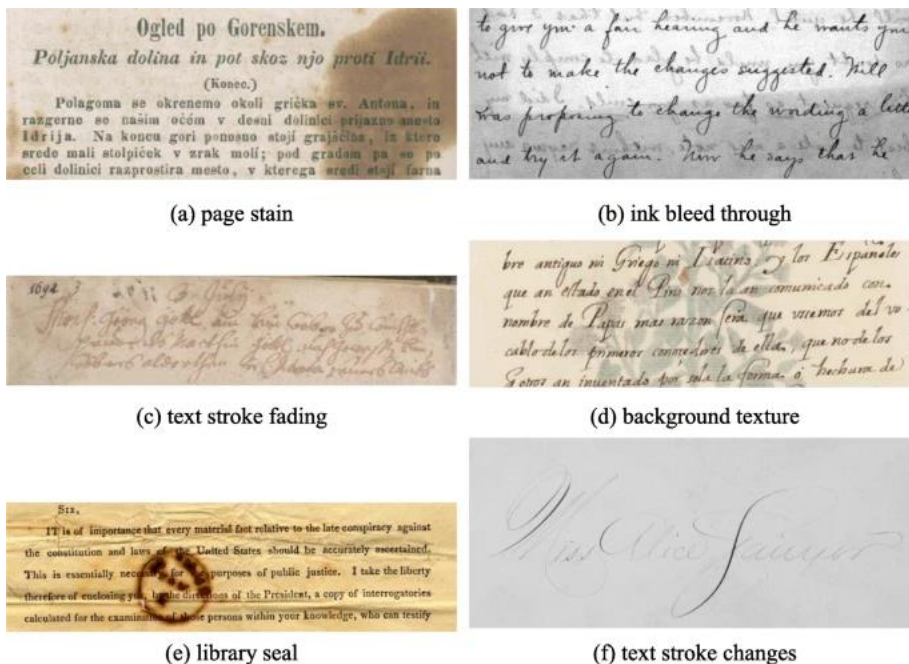 Ogled po Gorenskem.
Poljanska dolina in pot skoz njo proti Idrii.
(Konec.)
Polagoma se okrenemo okoli grička sv. Antona, in
razgerne se našim očém v desni dolinici prijazno mesto
Idrija. Na koncu gori ponosno stojí grajščina, iz ktere
srede mali stolpiček v zrak molí; pod gradom pa se po
celi dolinici razprostira mesto, v kterega sredi stojí farna
(a) page stain
to give you a fair hearing and he wants you
not to make the changes suggested. Will
was proposing to change the wording a litt
and try it again. Now he says that he
(b) ink bleed through
1694 3
(c) text stroke fading
bre antiguo ni Griego ni Latino, y los Españoles
que an estado en el Piru nos la an comunicado con
nombre de Papas mas razon sera que usemos del vo
cablo de los primeros conocedores de ella, que no de los
q otros an inventado por sola la forma o hechura de
(d) background texture
SIR,
IT is of importance that every material fact relative to the late conspiracy against
the constitution and laws of the United States should be accurately ascertained.
This is essentially necessary for purposes of public justice. I take the liberty
therefore of enclosing you, by the directions of the President, a copy of interrogatories
calculated for the examination of those persons within your knowledge, who can testify
(e) library seal
Miss Alice Sawyer
(f) text stroke changes